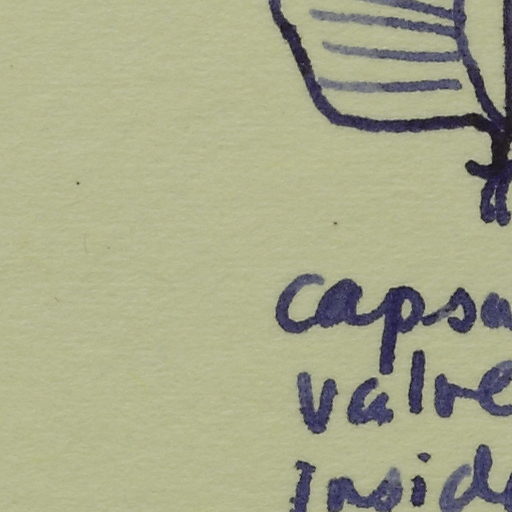 capsu
valve
insid